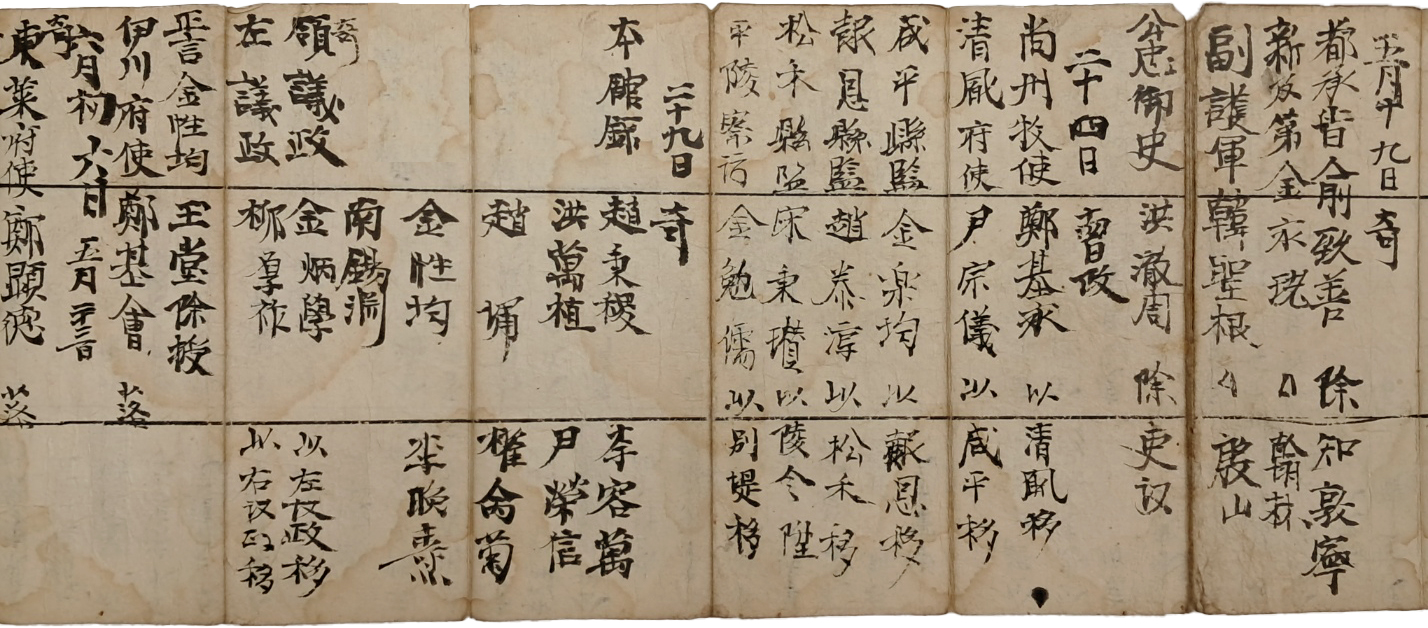 五月十九日 奇
都承旨 兪致善 除 知敦寧
新及第 金永珗 〃 翰林
副護軍 韓聖根 〃 殷山
公忠御史 洪澈周 除 吏议
二十四日 政
尚州牧使 鄭基承 以 清風移
清風府使 尹宗儀 以 咸平移
咸平縣監 金樂均 以 報恩移
報恩縣監 趙泰淳 以 松禾移
松禾縣監 宋秉瓚 以 陵令陞
平陵察訪 金勉儒 以 別提移
二十九日 奇
本館錄 趙秉稷 李容萬
洪萬植 尹榮信
趙 埇 權
金性均 李晩燾
南錫
奇
領議政 金炳學 以左议政移
左議政 柳厚祚 以右议政移
正言金性均 玉堂除授
伊川府使 鄭基會 落
奇 六月初六日 五月
東萊府使 鄭顯德 落